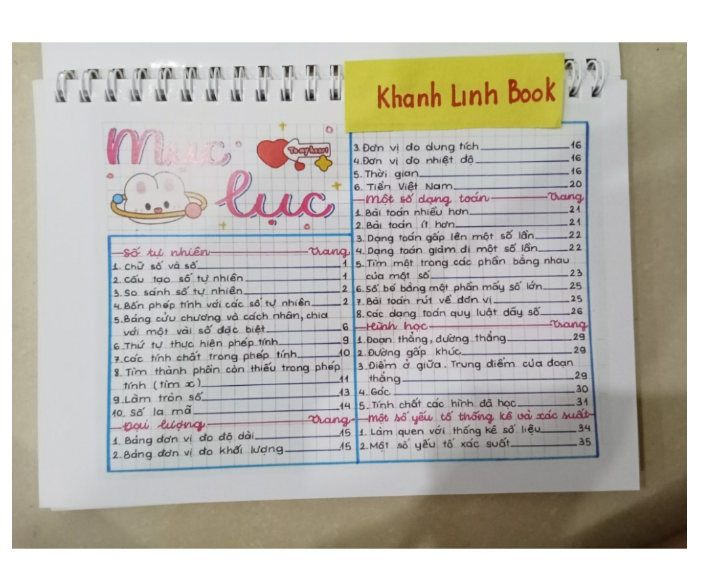 Khanh Linh Book
Mục
To my heart
lục
Số tự nhiên Trang
1. Chữ số và số 1
2. Cấu tạo số tự nhiên 1
3. So sánh số tự nhiên 2
4. Bốn phép tính với các số tự nhiên 2
5. Bảng cửu chương và cách nhân, chia
với một vài số đặc biệt 6
6. Thứ tự thực hiện phép tính 9
7. Các tính chất trong phép tính 10
8. Tìm thành phần còn thiếu trong phép
tính (tìm x) 11
9. Làm tròn số 13
10. Số la mã 14
Đại lượng Trang
1. Bảng đơn vị đo độ dài 15
2. Bảng đơn vị đo khối lượng 15
3. Đơn vị đo dung tích 16
4. Đơn vị đo nhiệt độ 16
5. Thời gian 16
6. Tiền Việt Nam 20
Một số dạng toán Trang
1. Bài toán nhiều hơn 21
2. Bài toán ít hơn 21
3. Dạng toán gấp lên một số lần 22
4. Dạng toán giảm đi một số lần 22
5. Tìm một trong các phần bằng nhau
của một số 23
6. Số bé bằng một phần mấy số lớn 25
7. Bài toán rút về đơn vị 25
8. Các dạng toán quy luật dãy số 26
Hình học Trang
1. Đoạn thẳng, đường thẳng 29
2. Đường gấp khúc 29
3. Điểm ở giữa. Trung điểm của đoạn
thẳng 29
4. Góc 30
5. Tính chất các hình đã học 31
Một số yếu tố thống kê và xác suất
1. Làm quen với thống kê số liệu 34
2. Một số yếu tố xác suất 35